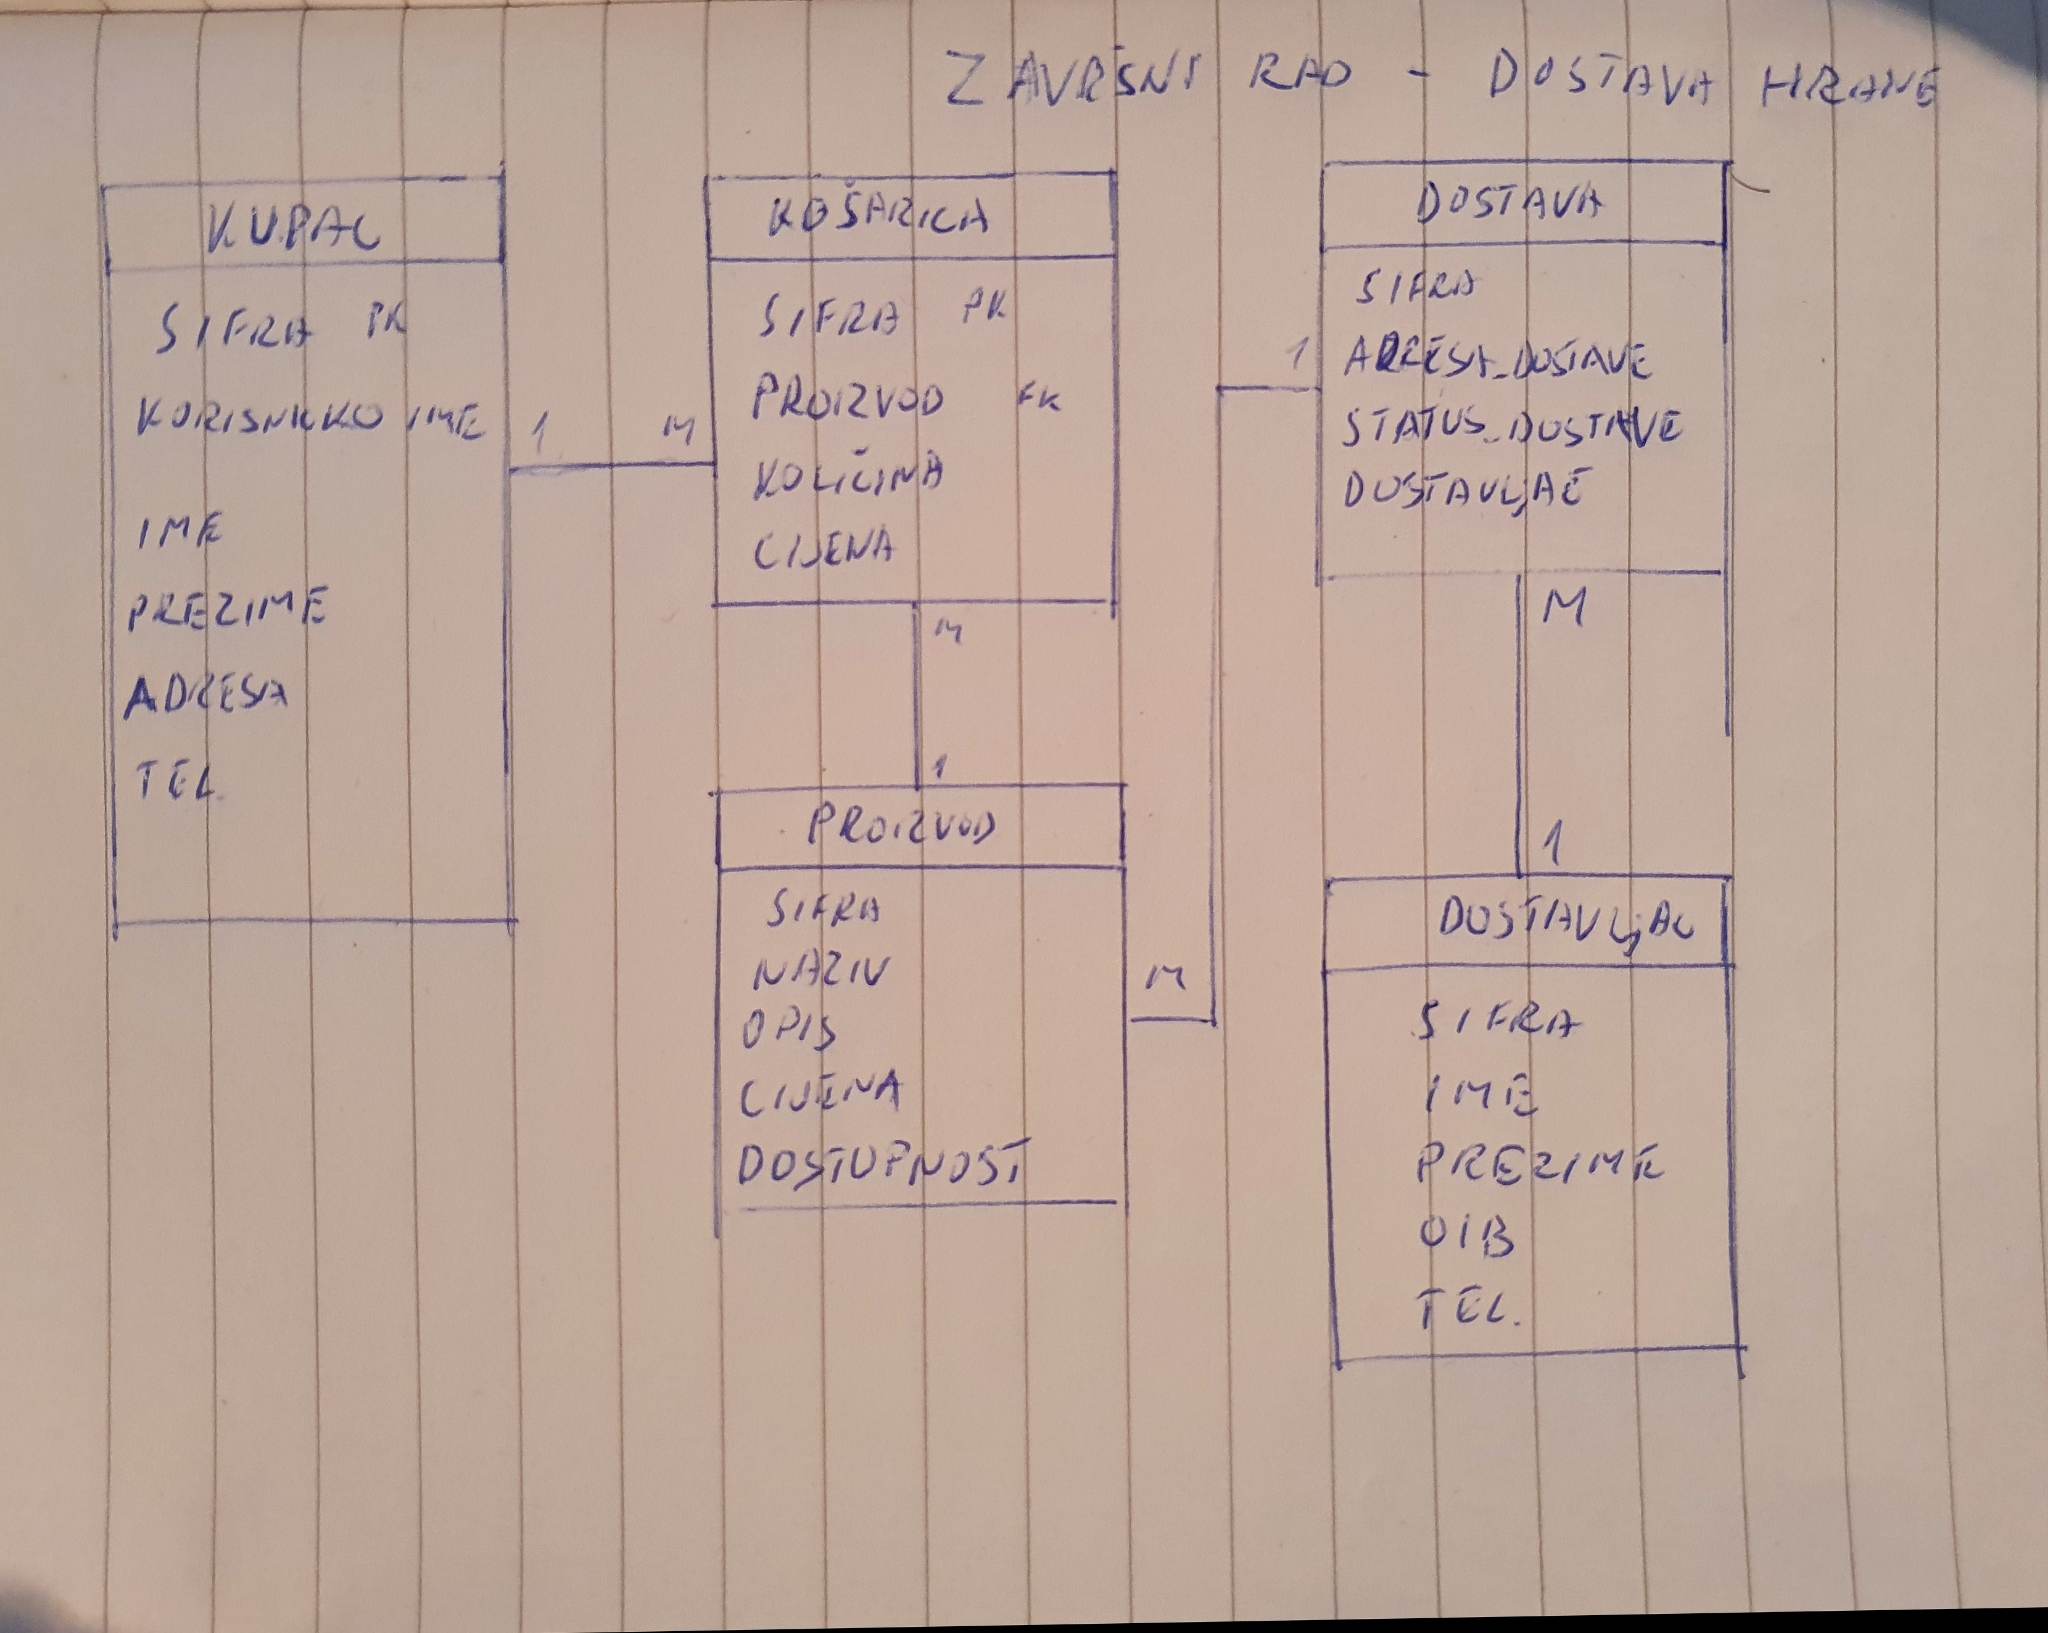 ZAVRŠNI RAD - DOSTAVA HRANE
KUPAC
SIFRA PK
KORISNIČKO IME
IME
PREZIME
ADRESA
TEL.
1 M
KOŠARICA
SIFRA PK
PROIZVOD FK
KOLIČINA
CIJENA
M
1
PROIZVOD
SIFRA
NAZIV
OPIS
CIJENA
DOSTUPNOST
M
1
DOSTAVA
SIFRA
ADRESA_DOSTAVE
STATUS_DOSTAVE
DOSTAVLJAČ
M
1
DOSTAVLJAC
SIFRA
IME
PREZIME
OIB
TEL.